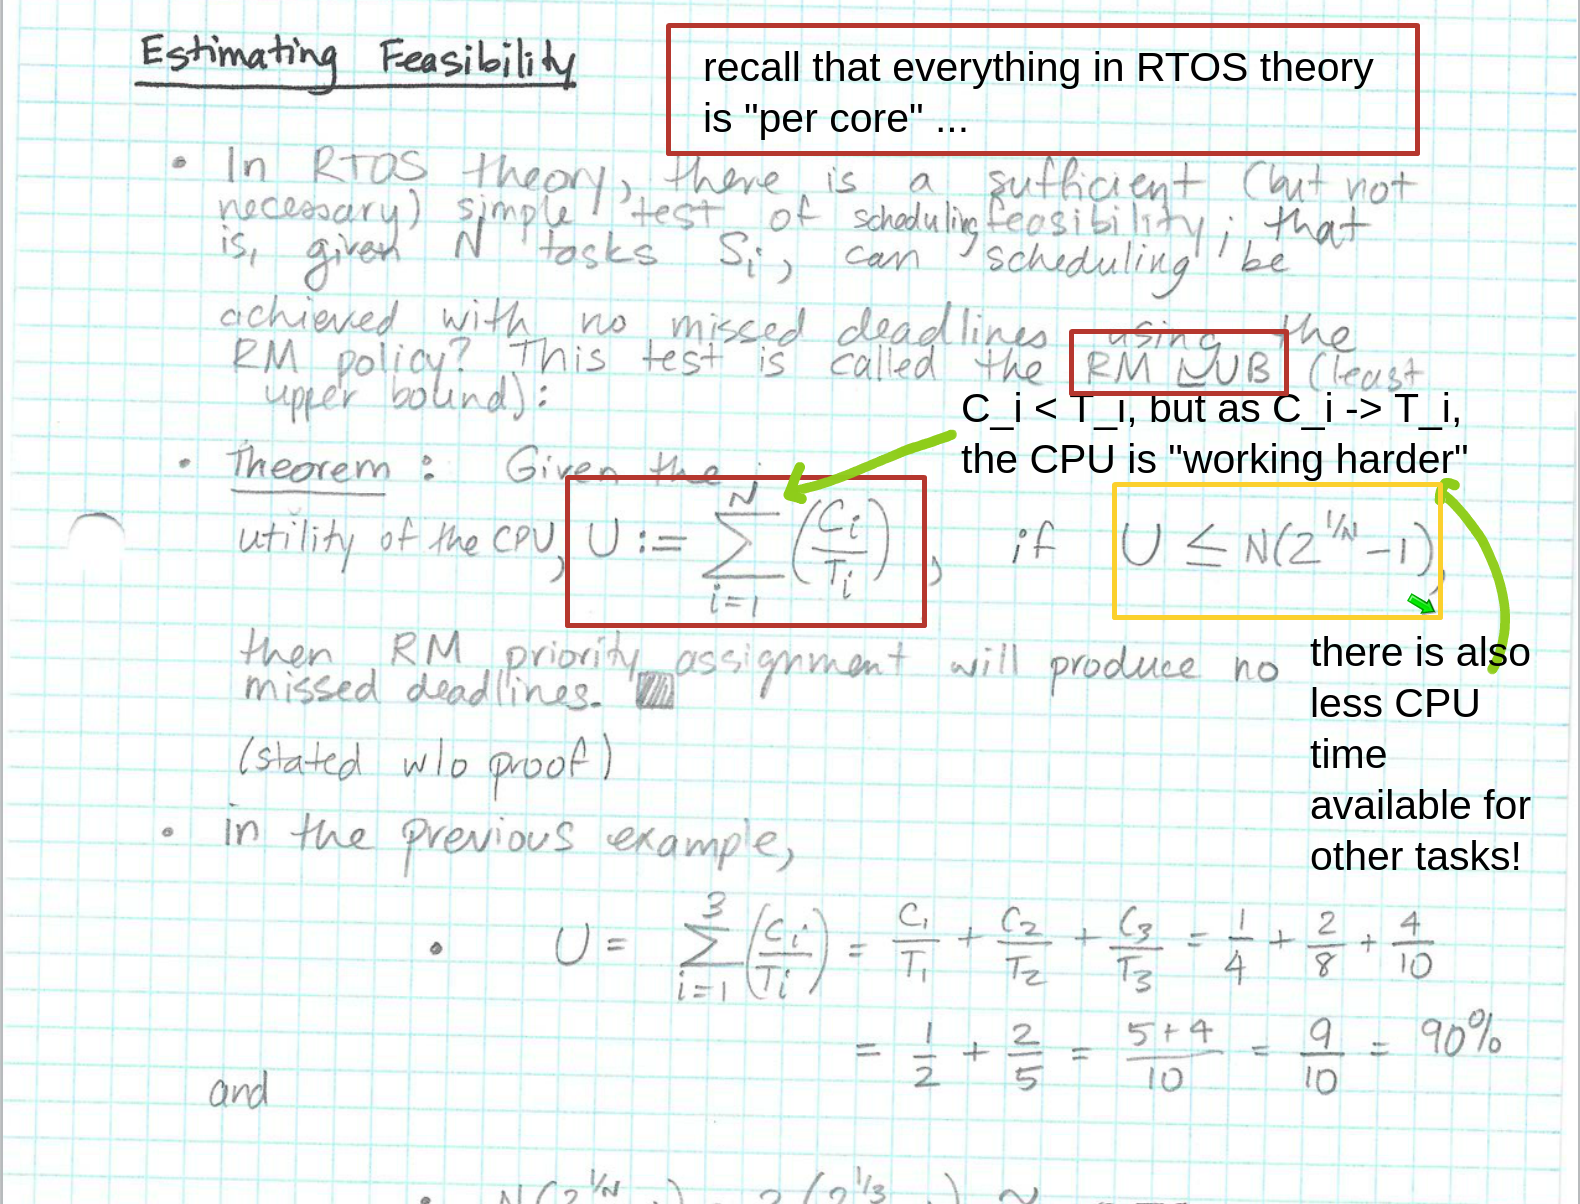 Estimating Feasibility
recall that everything in RTOS theory
is "per core" ...
• In RTOS theory, there is a sufficient (but not
necessary) simple test of scheduling feasibility; that
is, given N tasks Si, can scheduling be
achieved with no missed deadlines using the
RM policy? This test is called the RM LUB (least
upper bound):
C_i < T_i, but as C_i -> T_i,
the CPU is "working harder"
• Theorem: Given the
utility of the CPU, U := ∑_{i=1}^{N} (Ci/Ti), if U ≤ N(2^{1/N} - 1),
then RM priority assignment will produce no
missed deadlines.
there is also
less CPU
time
available for
other tasks!
(stated w/o proof)
• in the previous example,
• U = ∑_{i=1}^{3} (Ci/Ti) = C1/T1 + C2/T2 + C3/T3 = 1/4 + 2/8 + 4/10
= 1/2 + 2/5 = 5+4/10 = 9/10 = 90%
and